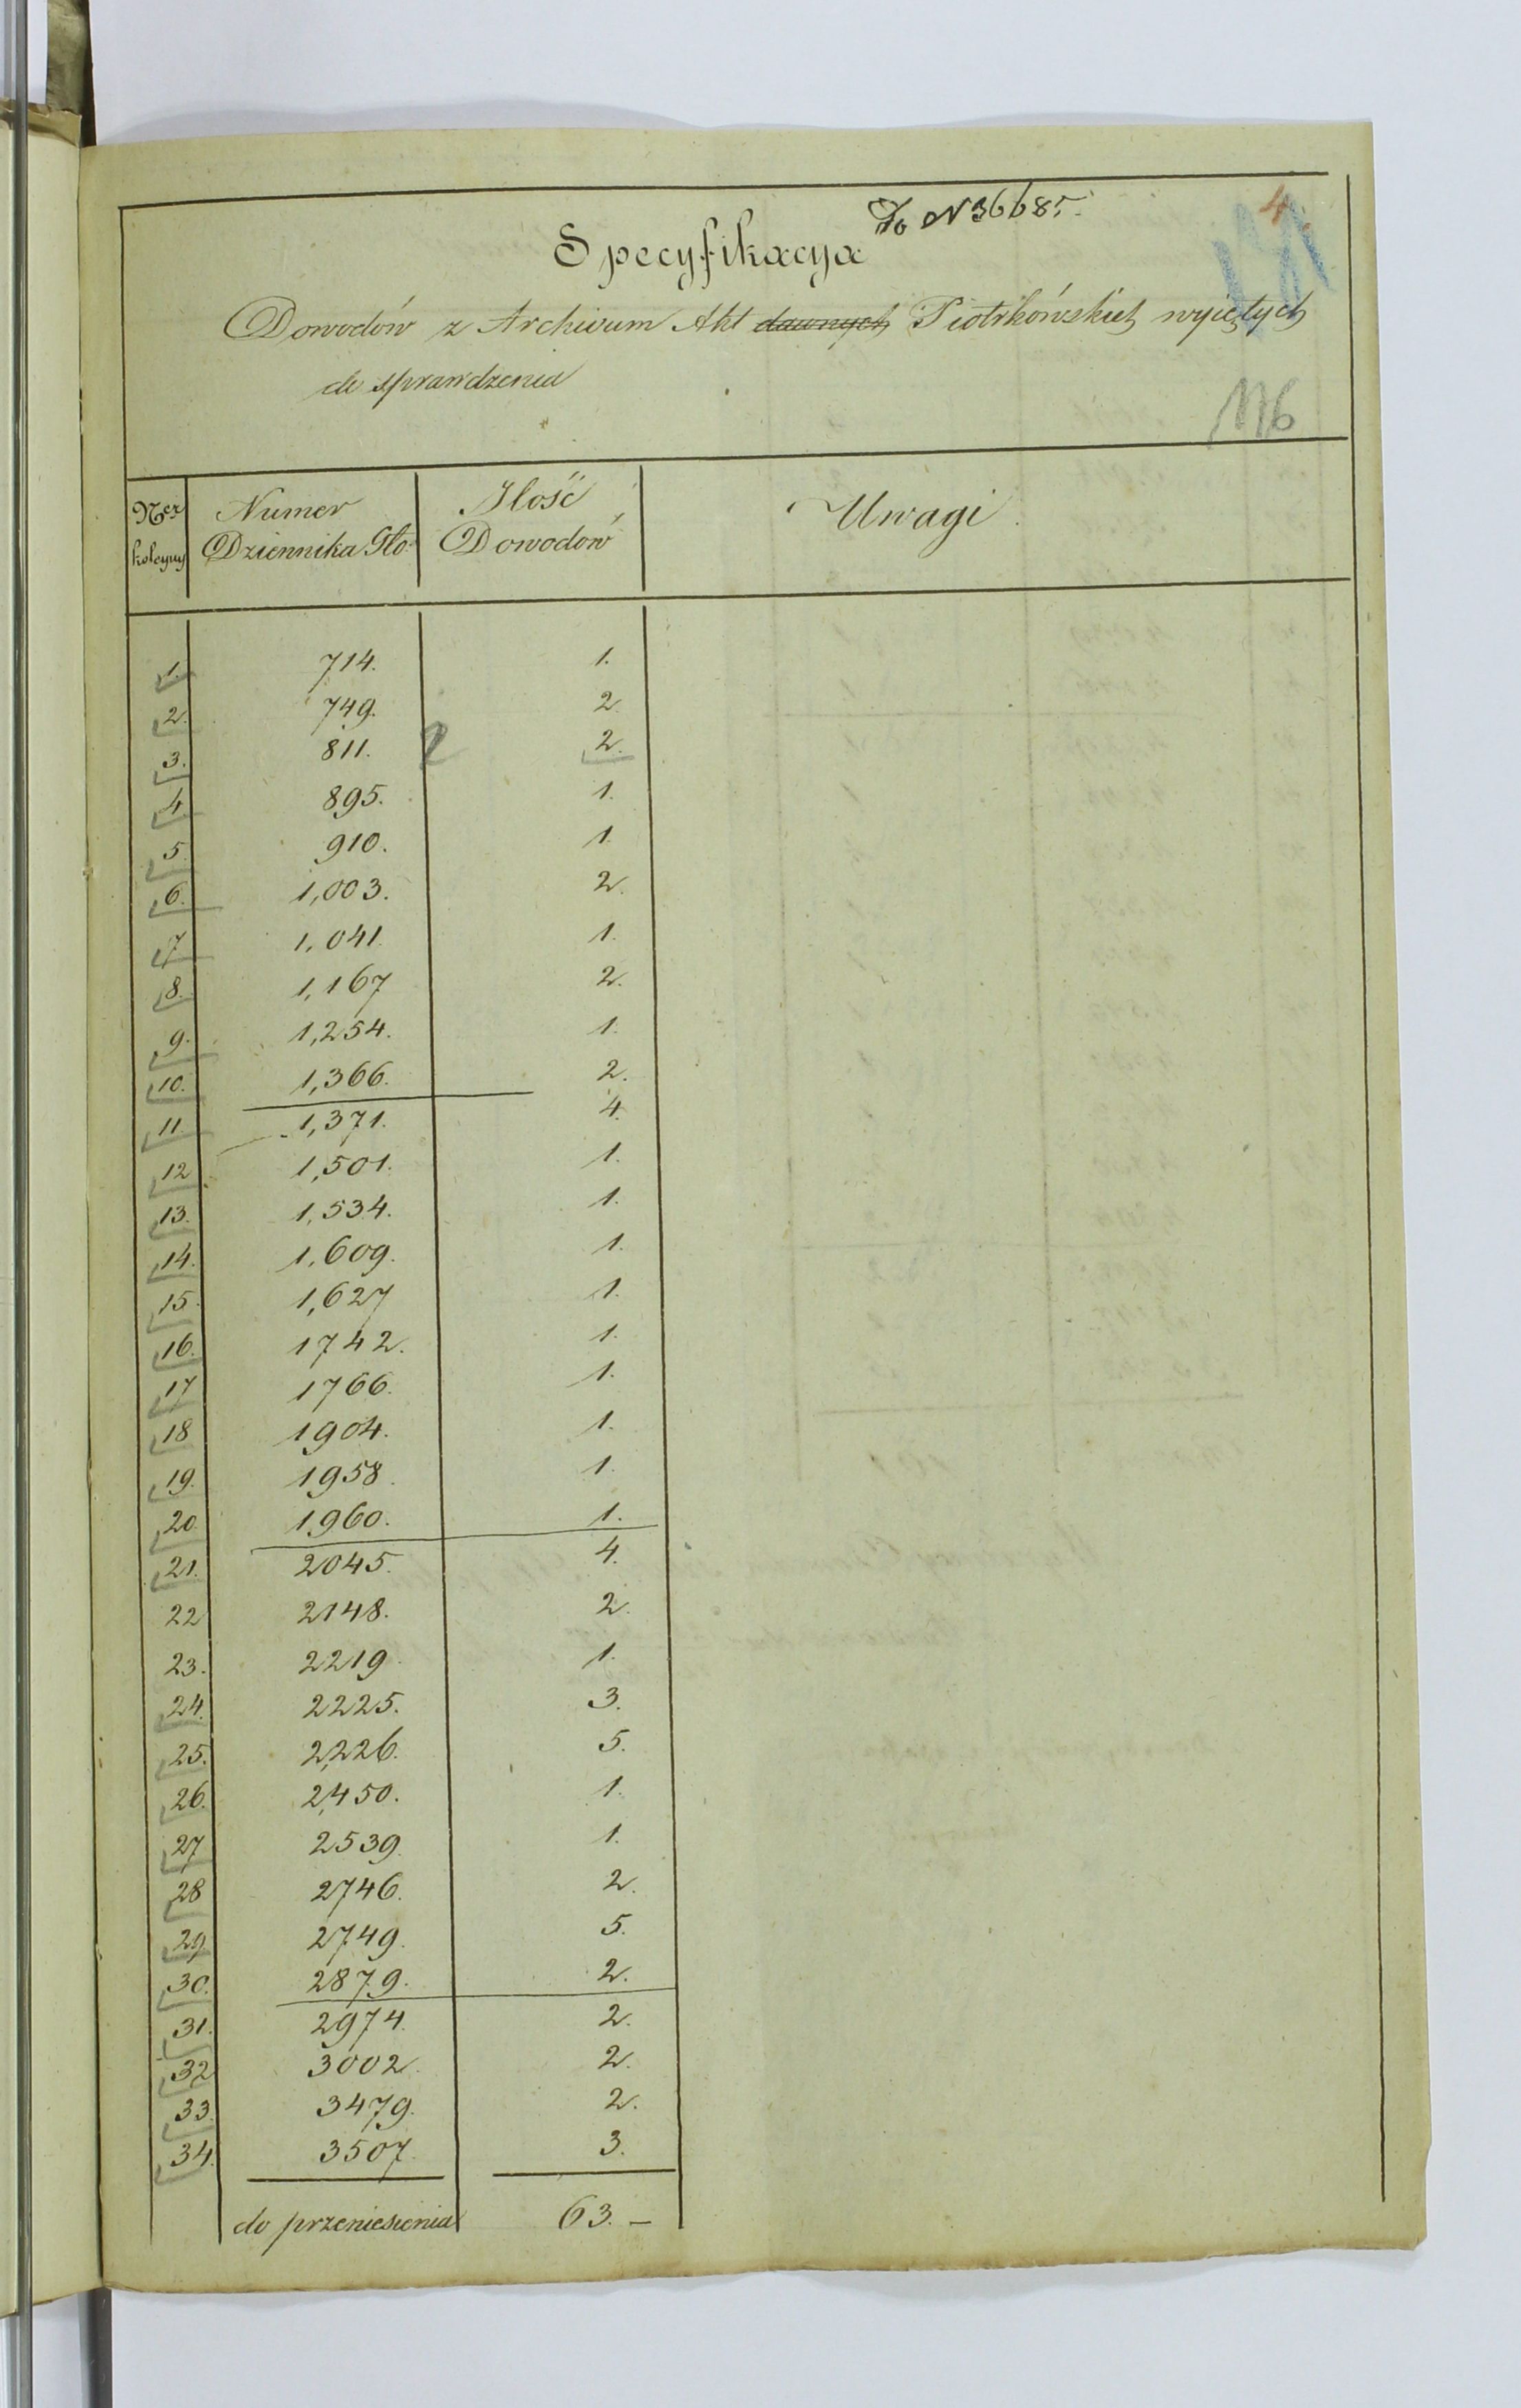 Do N 36685.
4
Specyfikacya
Dowodów z Archiwum Akt dawnych Piotrkówskich wyjętych
do sprawdzenia
Ner kolejny Numer Dziennika Gło: Ilość Dowodów Uwagi
1. 714. 1.
2. 749. 2.
3. 811. 2 2.
4. 895. 1.
5. 910. 1.
6. 1,003. 2.
7 1,041. 1.
8. 1,167 2.
9. 1,254. 1.
10. 1,366. 2.
11. 1,371. 4.
12 1,501. 1.
13. 1,534. 1.
14. 1,609. 1.
15. 1,627 1.
16. 1742. 1.
17 1766. 1.
18 1904. 1.
19. 1958. 1.
20. 1960. 1.
21. 2045. 4.
22 2148. 2.
23. 2219. 1.
24. 2225. 3.
25. 2,226. 5.
26. 2,450. 1.
27 2539. 1.
28 2746. 2.
29 2749. 5.
30. 2879. 2.
31. 2974. 2.
32 3002. 2.
33. 3479. 2.
34. 3507. 3.
do przeniesienia 63. –